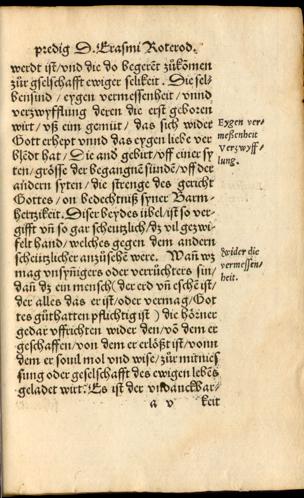 predig D. Erasmi Roterod.
werdt ist/vnd die do begerēt zůkōmen
zůr gselschafft ewiger selikeit. Die sel/
ben sünd/eygen vermessenheit/vnnd
verzwyfflung deren die erst geboren
wirt/vß eim gemüt/das sich wider
Gott erhept vnnd das eygen liebe ver
blēdt hat/Die and gebirt/vff einer sy
ten/grösse der begangnē sünde/vff der
andern syten/die strenge des gericht
Gottes/on bedechtniß syner Barm-
hertzikeit. Diser beydes übel/ist so ver-
gifft vñ so gar scheützlich/dz vil gezwi-
felt hand/welches gegen dem andern
scheützlicher anzůsehē were. Mañ wz
mag vnsyñigers oder verrüchters sin/
dañ dz ein mensch (der erd vñ eschē ist/
der alles das er ist/oder vermag/Got
tes gůthatten pflichtig ist) die hörner
gedar vffrichten wider den/vō dem er
geschaffen/von dem er erlößt ist/vonn
dem er souil mol vnd wise/zůr mitnies
sung oder geselschafft des ewigen lebēs
geladet wirt. Es ist der vndanckbar-
a v keit
Eygen ver-
meßenheit
Verzwyff-
lung.
Wider die
vermessen-
heit.